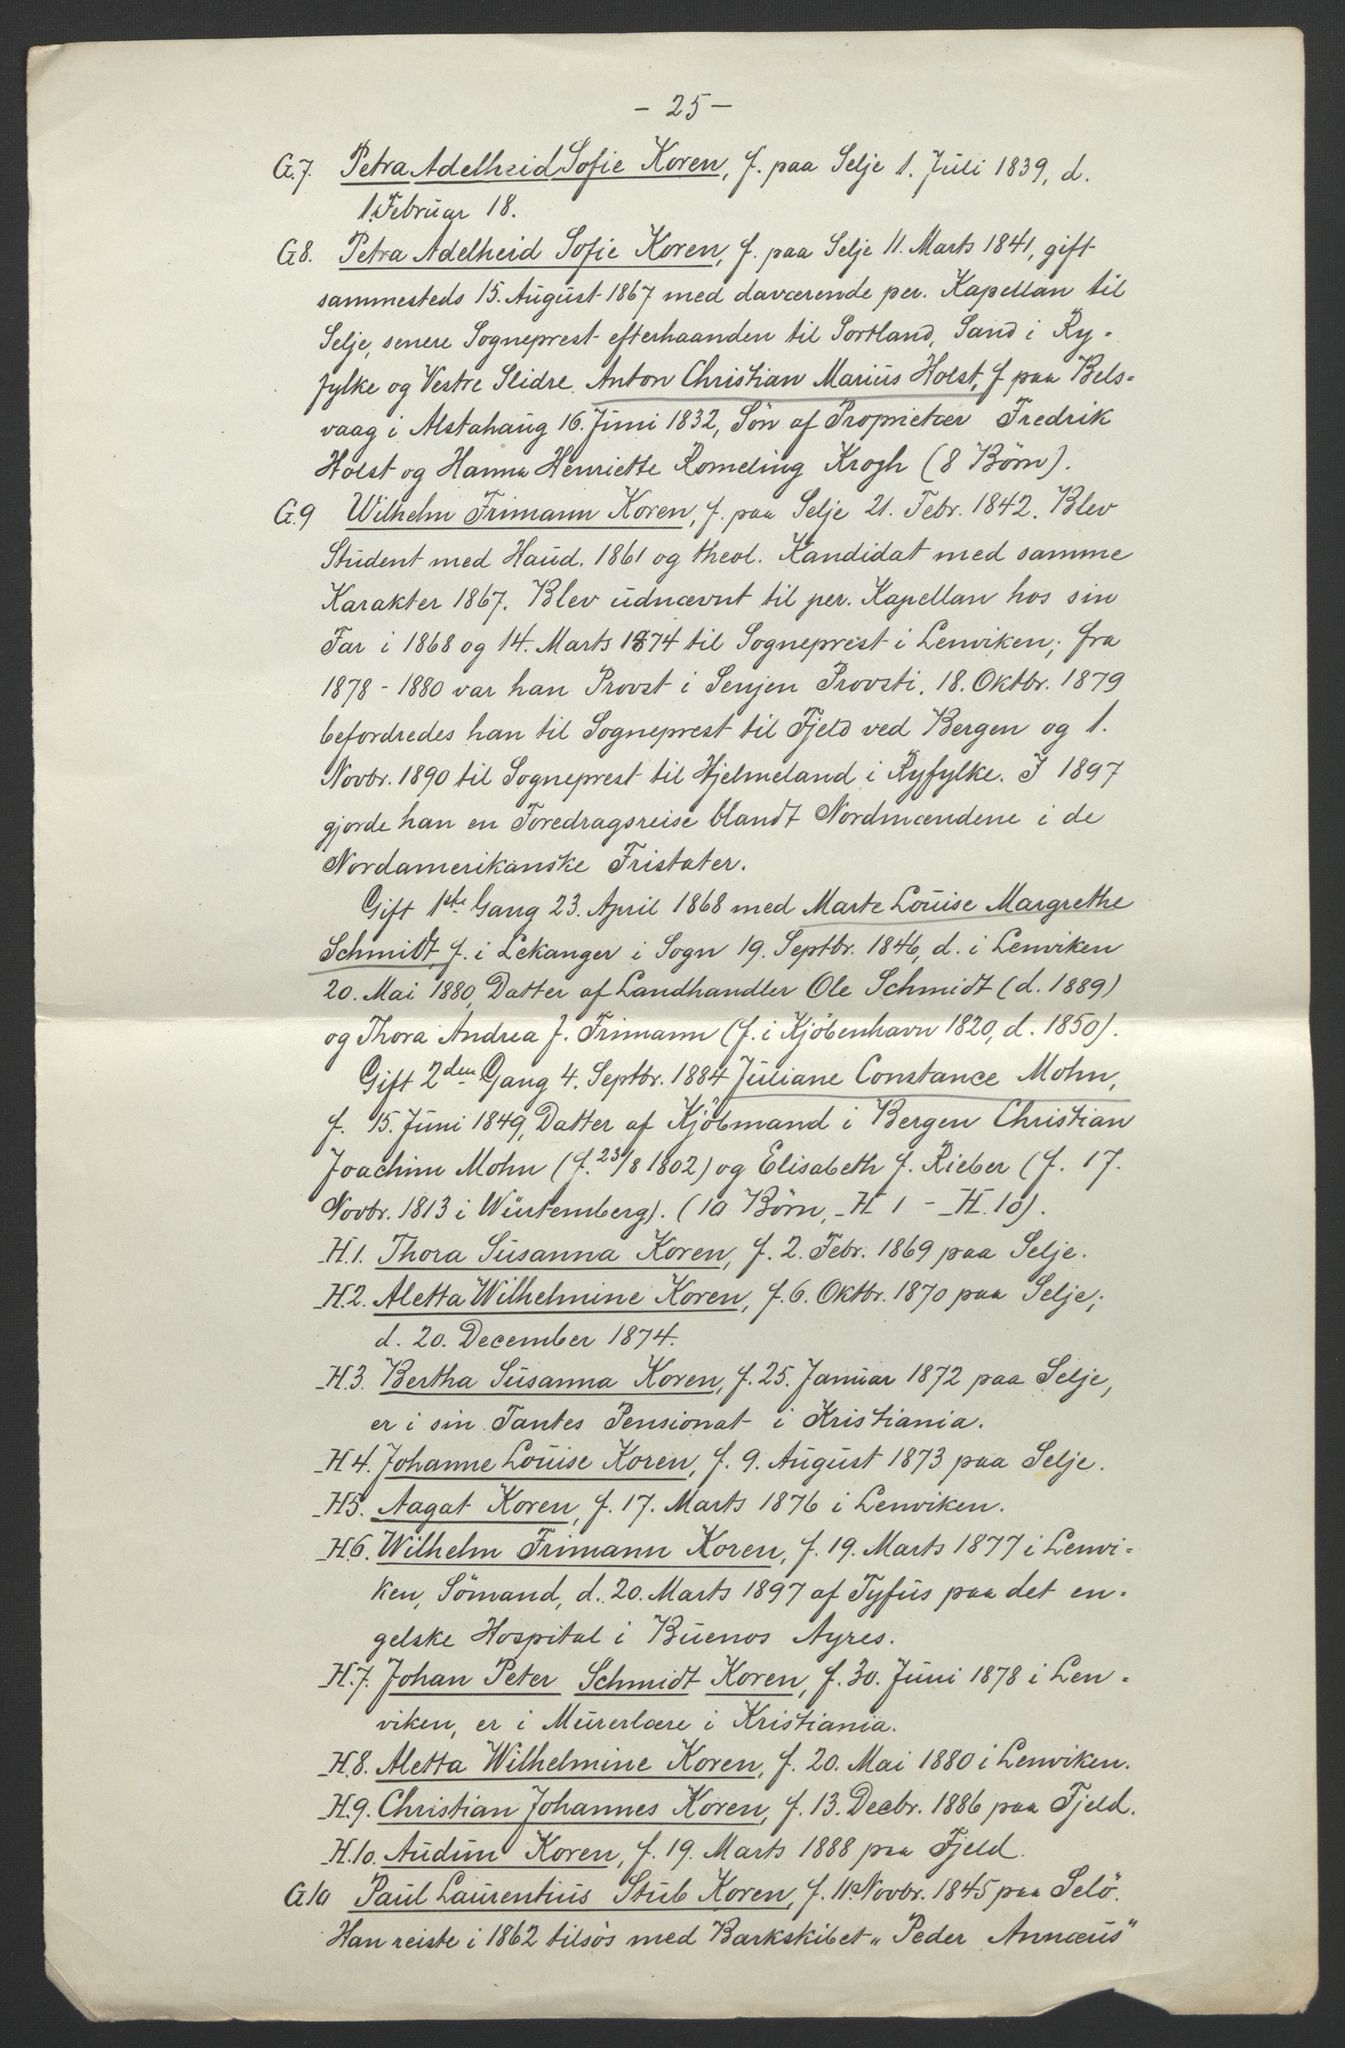 - 25 -
G.7. Petra Adelheid Sofie Koren, f. paa Selje 1. Juli 1839, d.
1. Februar 18.
G8. Petra Adelheid Sofie Koren, f. paa Selje 11. Marts 1841, gift
sammesteds 15. August 1867 med daværende per. Kapellan til
Selje, senere Sogneprest efterhaanden til Sortland, Sand i Ry-
fylke og Vestre Slidre. Anton Christian Marius Holst, f. paa Bels-
vaag i Alstahaug 16. Juni 1832, Sön af Proprietær Fredrik
Holst og Hanna Henriette Romeling Krogh (8 Børn).
G.9 Wilhelm Frimann Koren, f. paa Selje 21. Febr. 1842. Blev
Student med Haud. 1861 og theol. Kandidat med samme
Karakter 1867. Blev udnævnt til per. Kapellan hos sin
Far i 1868 og 14. Marts 1874 til Sogneprest i Lenviken; fra
1878 - 1880 var han Provst i Senjen Provsti. 18. Oktbr. 1879
befordredes han til Sogneprest til Fjeld ved Bergen og 1.
Novbr. 1890 til Sogneprest til Hjelmeland i Ryfylke. I 1897
gjorde han en Foredragsreise blandt Nordmændene i de
Nordamerikanske Fristater.
Gift 1ste Gang 23. April 1868 med Marte Louise Margrethe
Schmidt, f. i Lekanger i Sogn 19. Septbr. 1846, d. i Lenviken
20. Mai 1880, Datter af Landhandler Ole Schmidt (d. 1889)
og Thora Andrea f. Frimann (f. i Kjöbenhavn 1820, d. 1850).
Gift 2den Gang 4. Septbr. 1884 Juliane Constance Mohn,
f. 15. Juni 1849, Datter af Kjöbmand i Bergen Christian
Joachim Mohn (f. 23/8 1802) og Elisabeth f. Rieber (f. 17.
Novbr. 1813 i Würtemberg). (10 Börn, H 1 - H. 10).
H.1. Thora Susanna Koren, f. 2. Febr. 1869 paa Selje.
H.2. Aletta Wilhelmine Koren, f. 6. Oktbr. 1870 paa Selje;
d. 20. December 1874.
H.3. Bertha Susanna Koren, f. 25. Januar 1872 paa Selje,
er i sin Tantes Pensionat i Kristiania.
H4. Johanne Louise Koren, f. 9. August 1873 paa Selje.
H5. Aagat Koren, f. 17. Marts 1876 i Lenviken.
H.6. Wilhelm Frimann Koren, f. 19. Marts 1877 i Lenvi-
ken, Sömand, d. 20. Marts 1897 af Tyfus paa det en-
gelske Hospital i Buenos Ayres.
H.7. Johan Peter Schmidt Koren, f. 30. Juni 1878 i Len-
viken, er i Murerlære i Kristiania.
H.8. Aletta Wilhelmine Koren, f. 20. Mai 1880 i Lenviken.
H.9. Christian Johannes Koren, f. 13. Decbr. 1886 paa Fjeld.
H.10. Audun Koren, f. 19. Marts 1888 paa Fjeld.
G.10 Paul Laurentius Stub Koren, f. 11. Novbr. 1845 paa Selö.
Han reiste i 1862 tilsös med Barkskibet „Peder Annæus"